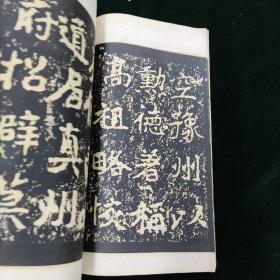 空豫州以
勳德著稱
高祖略恢
道居真州
府招辟莫